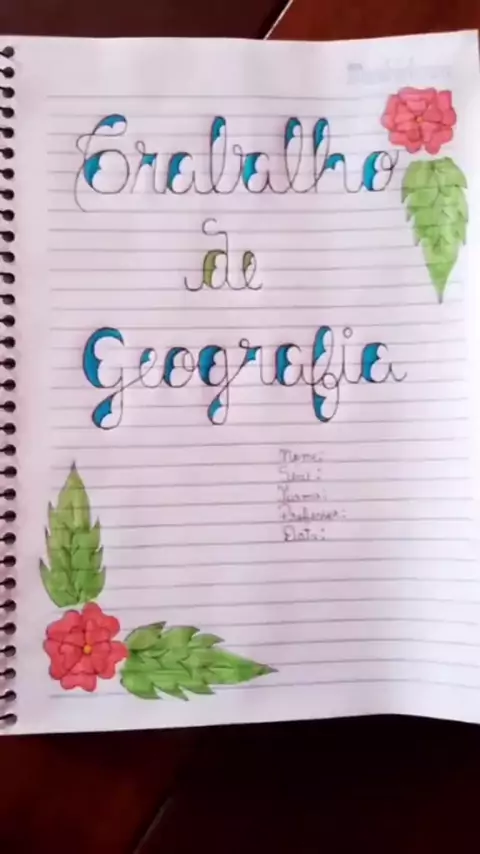 Trabalho
de
Geografia
Nome:
Série:
Turma:
Professor:
Data: